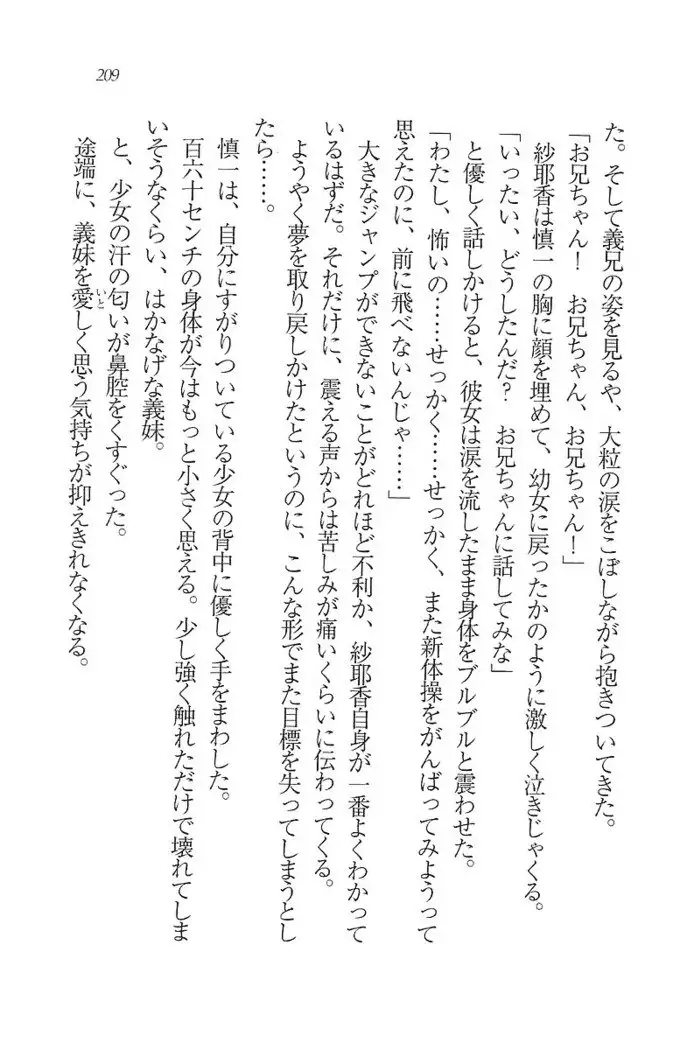 209
た。そして義兄の姿を見るや、大粒の涙をこぼしながら抱きついてきた。
「お兄ちゃん！　お兄ちゃん、お兄ちゃん！」
紗耶香は慎一の胸に顔を埋めて、幼女に戻ったかのように激しく泣きじゃくる。
「いったい、どうしたんだ？　お兄ちゃんに話してみな」
と優しく話しかけると、彼女は涙を流したまま身体をブルブルと震わせた。
「わたし、怖いの……せっかく……せっかく、また新体操をがんばってみようって
思えたのに、前に飛べないんじゃ……」
大きなジャンプができないことがどれほど不利か、紗耶香自身が一番よくわかって
いるはずだ。それだけに、震える声からは苦しみが痛いくらいに伝わってくる。
ようやく夢を取り戻しかけたというのに、こんな形でまた目標を失ってしまうとし
たら……。
慎一は、自分にすがりついている少女の背中に優しく手をまわした。
百六十センチの身体が今はもっと小さく思える。少し強く触れただけで壊れてしま
いそうなくらい、はかなげな義妹。
と、少女の汗の匂いが鼻腔をくすぐった。
途端に、義妹を愛しく思う気持ちが抑えきれなくなる。
いと